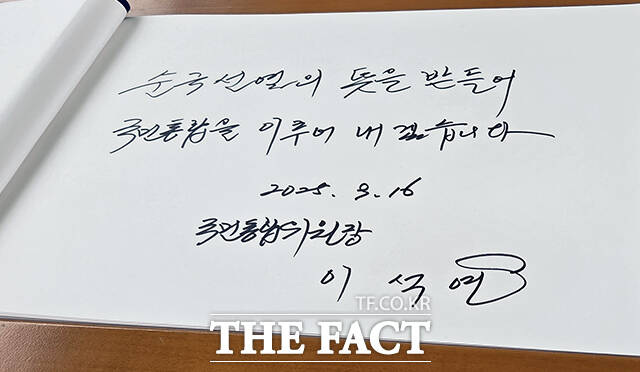 순국선열의 뜻을 받들어
국민통합을 이루어 내겠습니다
2025. 9. 16
국민통합위원장
이 석 연
TF.CO.KR
THE FACT